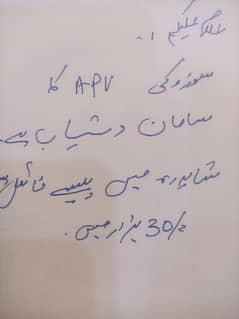 السلام علیکم ..
سوزوکی APV کا
سامان دستیاب ہے
شاہدرہ میں پیسے فائنل
30/ ہزار میں.